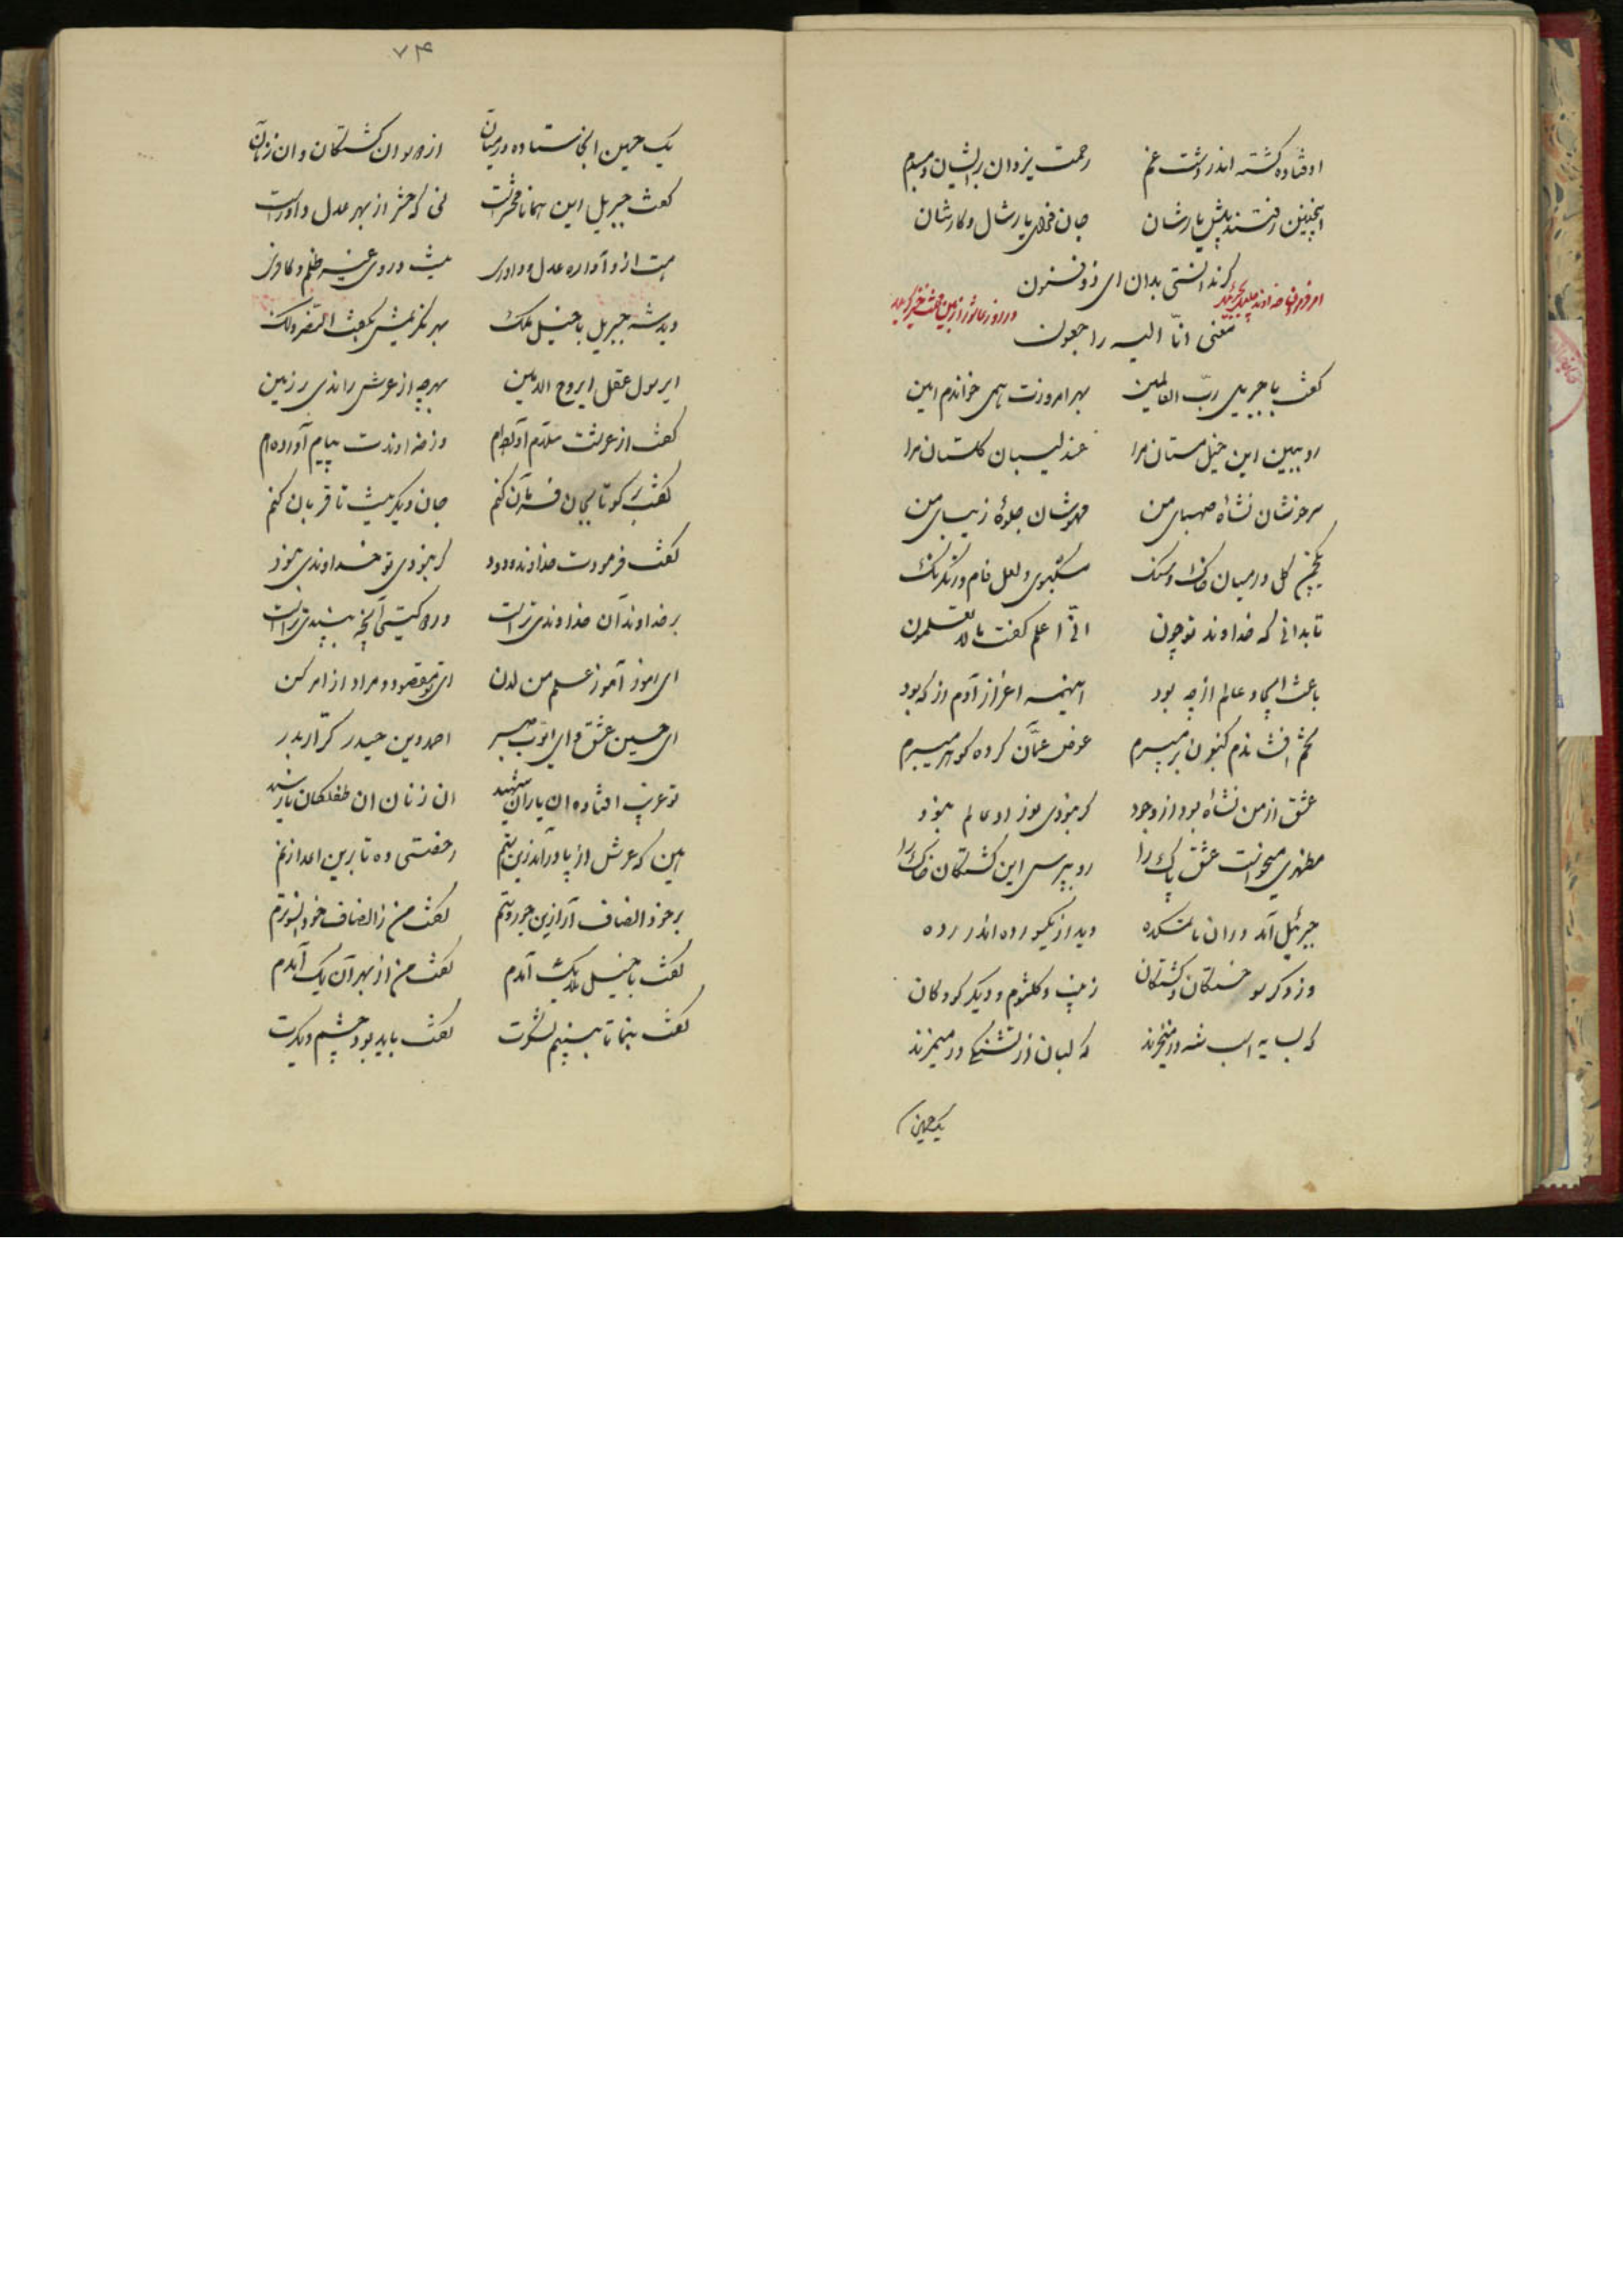 اوفتاده کشته اندر دشت غم رحمت یزدان برایشان دمبدم
اینچنین رفتند پیش یارشان جان فدای یارشان و کارشان
گر ندانستی بدان ای ذوفنون
معنی انّا الیه راجعون
گفت با جبریل ربّ العالمین بهر امروزت همی خواندم امین
رو ببین این خیل مستان مرا عندلیبان گلستان مرا
سرخوشان نشأه صهبای من مهوشان جلوۀ زیبای من
گل در میان خاک و سنگ مشکبوی و لعل فام و رنگ رنگ
تا بدانی که خداوند تو چون انّی اعلم گفت ما لا تعلمون
باعث ایجاد عالم از چه بود اینهمه اعزاز آدم از که بود
تخم افشاندم کنون بر میبرم عوض عمّان کرده گوهر میبرم
عشق از من نشأه بود از وجود گر نبودی عالم نبود
مظهری میخواست عشق پاک را رو بپرس این کشتگان خاک را
جبرئیل آمد در ان ماتمکده دید از یکسو رده اندر رده
وز دگر سو خستگان و کشتگان زینب و کلثوم و دیگر کودکان
که لبان از تشنگی در
یک حسین
۷۴
یک حسین انجا ستاده در میان از دو سو ان کشتگان و ان زنان
گفت جبریل این همانا محشر است نی که حشر از بهر عدل و داور است
هست از و آواره عدل و داوری نیست در وی غیر ظلم و کافری
دید شه جبریل با خیل ملک بهر نصرتش بگفت النصر لک
ای رسول عقل ای روح الامین بهر چه از عرش راندی بر زمین
گفت از عرشت سلام آورده‌ام وز خداوندت پیام آورده‌ام
گفت گو تا بجان فرمان کنم جان دیگر نیست تا قربان کنم
گفت فرمودت خداوند ودود گر نبودی تو خداوندی نبود
بر خداوندان خداوندی تراست در دو گیتی آنچه بپسندی تراست
ای رموز آموز علم من لدن ای تو مقصود و مراد از امر کن
ای حسین عشق و ای ایوب صبر احمد دین حیدر کرّار بدر
تو غریب افتاده ان یاران شهید ان زنان ان طفلکان
بین که عرش از پا درآمد زین ستم رخصتی ده تا برین اعدا زنم
بر خود انصاف آر ازین جور و ستم گفت من ز انصاف خود
گفت با خیل ملایک آمدم گفت من از بهر آن یک آمدم
گفت بنما تا ببینم لشکرت گفت باید بود چشم دیگرت